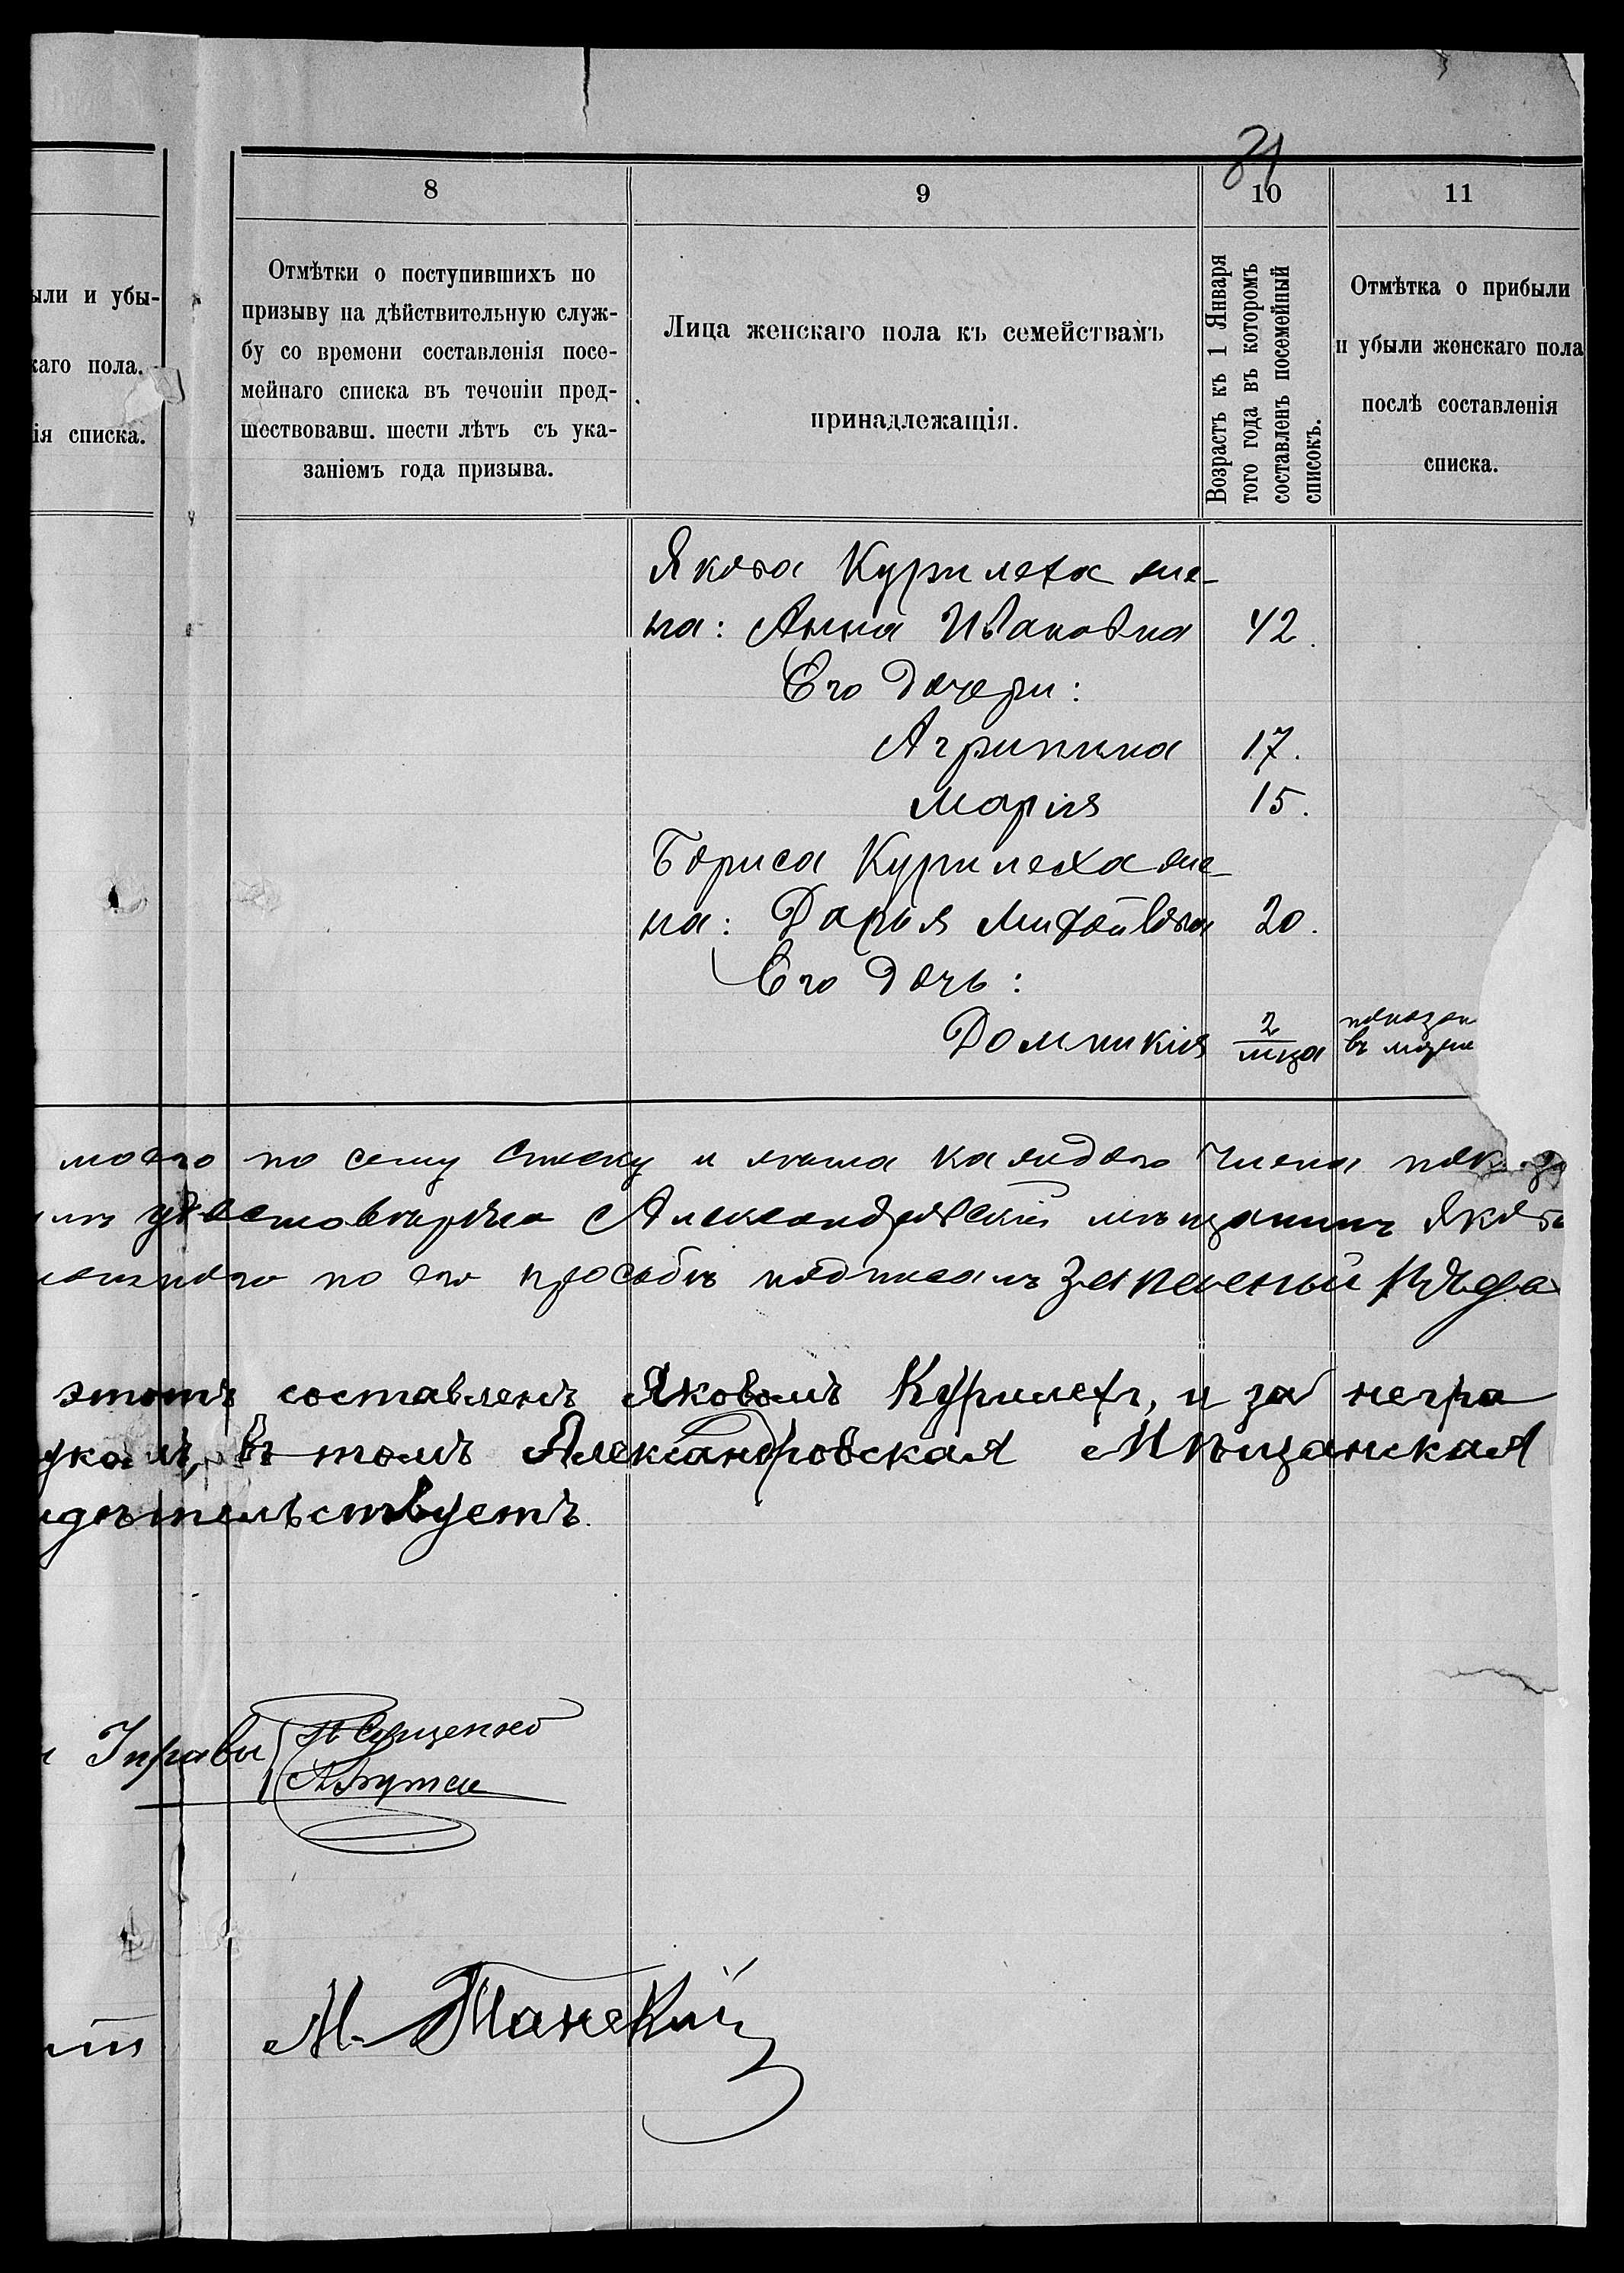 31
8
9
10
11
ыли и убы-
каго пола.
ія списка.
Отмѣтки о поступившихъ по
призыву на дѣйствительную служ-
бу со времени составленія посе-
мейнаго списка въ теченіи пред-
шествовавш. шести лѣтъ съ ука-
заніемъ года призыва.
Лица женскаго пола къ семействамъ
принадлежащія.
Возрастъ къ 1 Января
того года въ которомъ
составленъ посемейный
списокъ.
Отмѣтка о прибыли
и убыли женскаго пола
послѣ составленія
списка.
Якова Курилеха же-
на: Анна Ивановна 42.
Его дочери:
Агрипина 17.
Марія 15.
Бориса Курилеха же-
на: Дарья 20.
Его дочь:
Домникія 2/мца показан
въ
моего по сему списку и лѣта каждого члена показа
Александровскій мѣщанинъ Яковъ
по его просьбѣ подписалъ
этотъ составленъ Яковомъ Курилехъ, и за негра
въ томъ Александровская Мѣщанская
идѣтельствуетъ.
Управы
М.